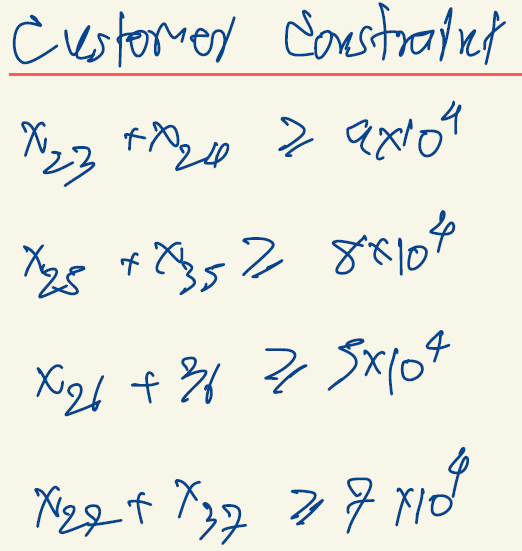 Customer Constraint
x₂₃ + x₂₄ ≥ 9×10⁴
x₂₅ + x₃₅ ≥ 8×10⁴
x₂₆ + 36 ≥ 5×10⁴
x₂₇ + x₃₇ ≥ 7×10⁴